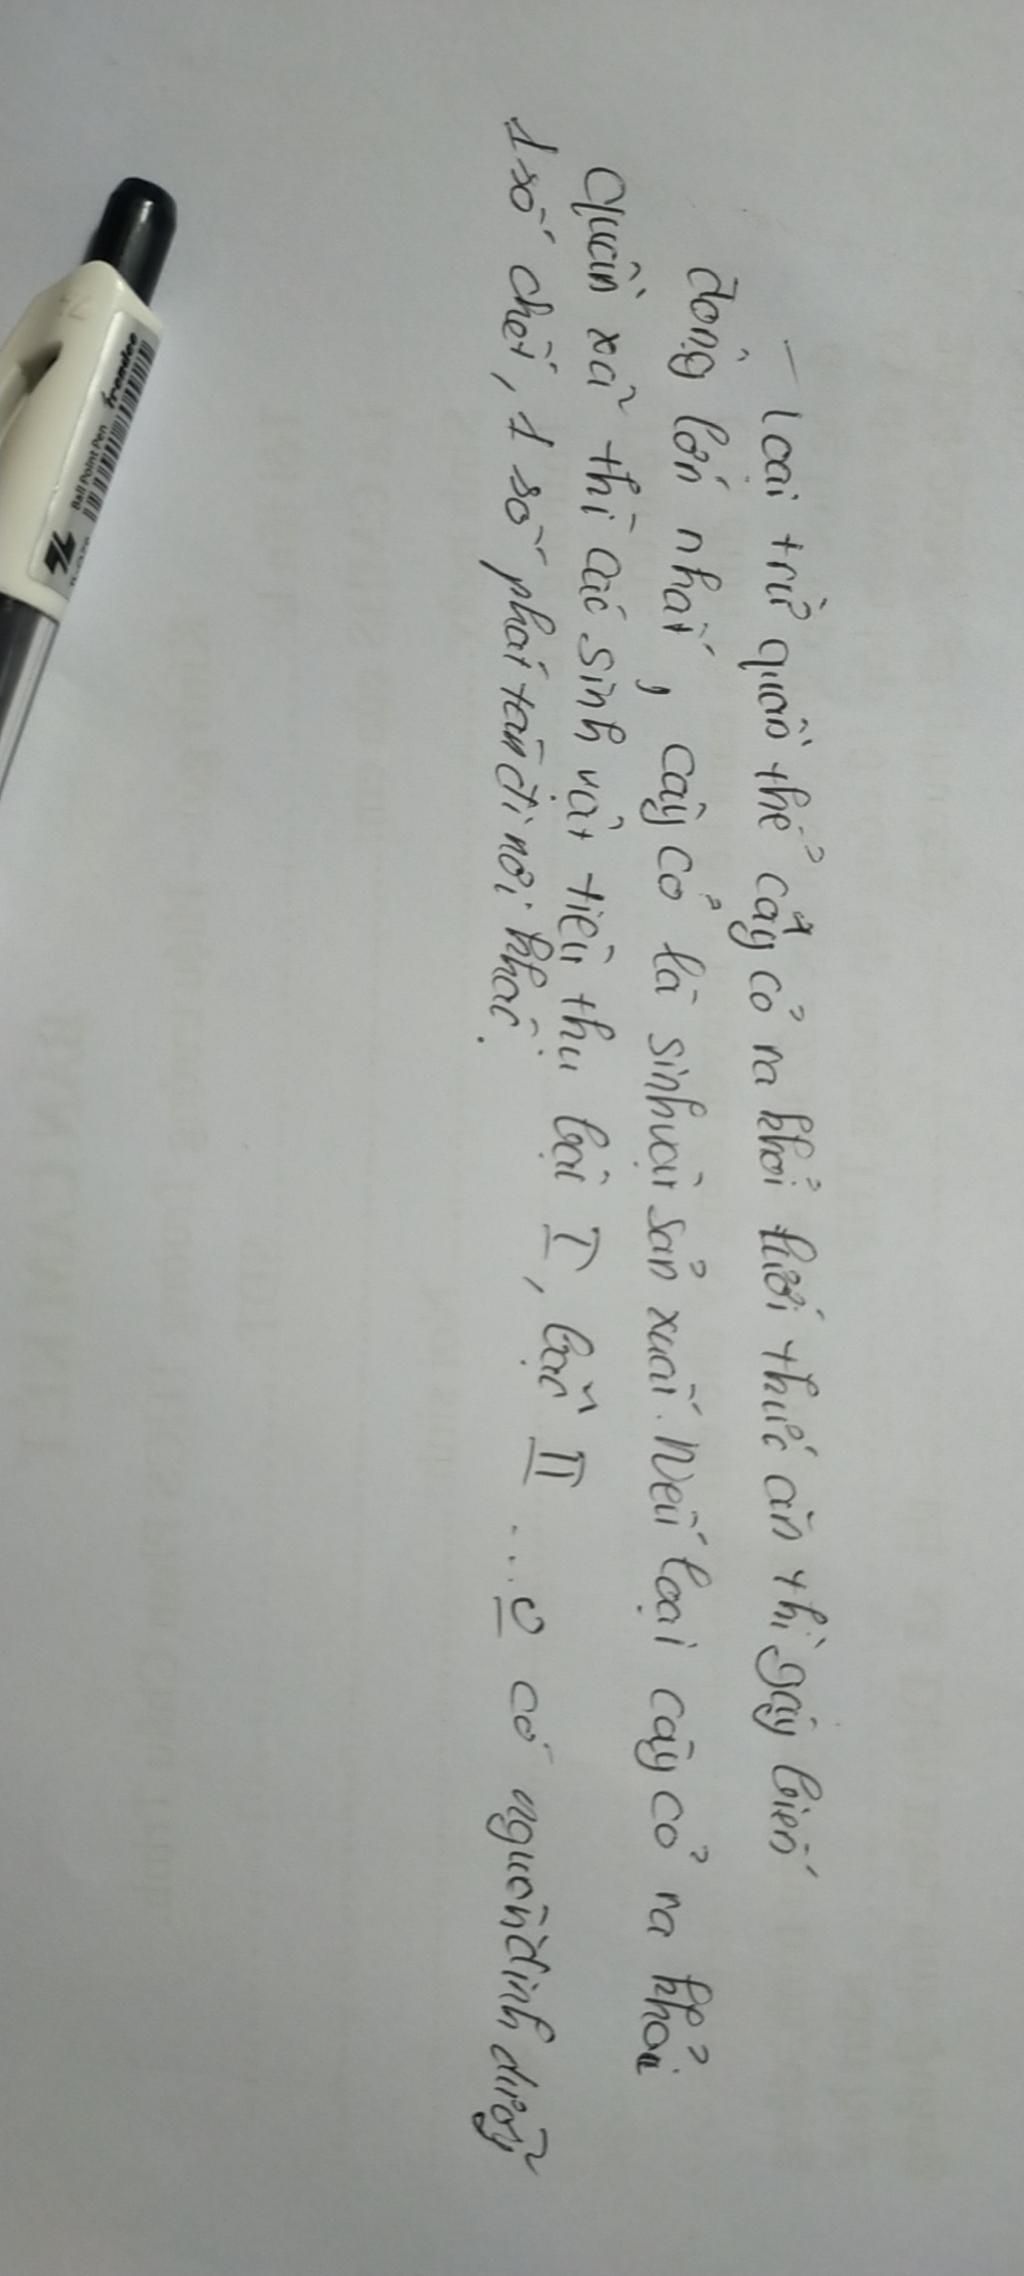 - Loại trừ quần thể cây cỏ ra khỏi lưới thức ăn thì gây biến
động lớn nhất, cây cỏ là sinh vật sản xuất. Nếu loại cây cỏ ra khỏi
Quần xã thì các sinh vật tiêu thụ bậc I, bậc II ... 0 có nguồn dinh dưỡng
1 số chết, 1 số phát tán đi nơi khác.
freedee
Ball Point Pen